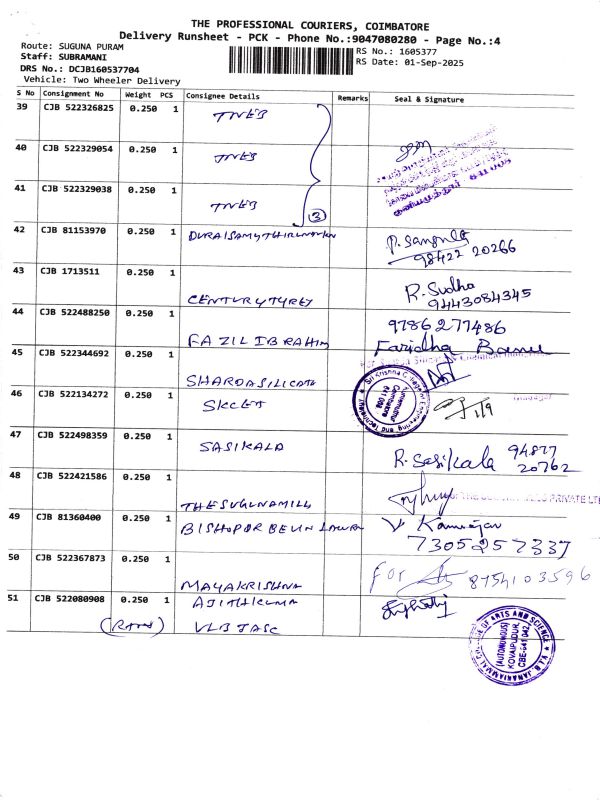 THE PROFESSIONAL COURIERS, COIMBATORE
Delivery Runsheet - PCK - Phone No.:9047080280 - Page No.:4
Route: SUGUNA PURAM
RS No.: 1605377
Staff: SUBRAMANI
RS Date: 01-Sep-2025
DRS No.: DCJB160537704
Vehicle: Two Wheeler Delivery
S No Consignment No Weight PCS Consignee Details Remarks Seal & Signature
39 CJB 522326825 0.250 1 TNEB
40 CJB 522329054 0.250 1 TNEB
41 CJB 522329038 0.250 1 TNEB
3
42 CJB 81153970 0.250 1 P. Sangeeta
98422 20266
43 CJB 1713511 0.250 1 CENTURYTYREY R. Sudha
9443084345
44 CJB 522488250 0.250 1 FAZIL IBRAHIM 9786277486
Faridha Banu
45 CJB 522344692 0.250 1 SHARDASILICATA
46 CJB 522134272 0.250 1 SKCET 1/9
Sri Krishna College of Engineering and Technology
Kuniamuthur
Coimbatore
641 008
Manager
47 CJB 522498359 0.250 1 SASIKALA R. Sasikala 94877
20762
48 CJB 522421586 0.250 1 THESUGUNAMILLS PRIVATE LTD
49 CJB 81360400 0.250 1 V Kannajan
7305257337
50 CJB 522367873 0.250 1 MAYAKRISHNA For 8754103596
51 CJB 522080908 0.250 1 AJITHKUMA
VLB JASC
V.L.B. JANAKIAMMAL COLLEGE OF ARTS AND SCIENCE
(AUTONOMOUS)
KOVAIPUDUR
CBE-641 042